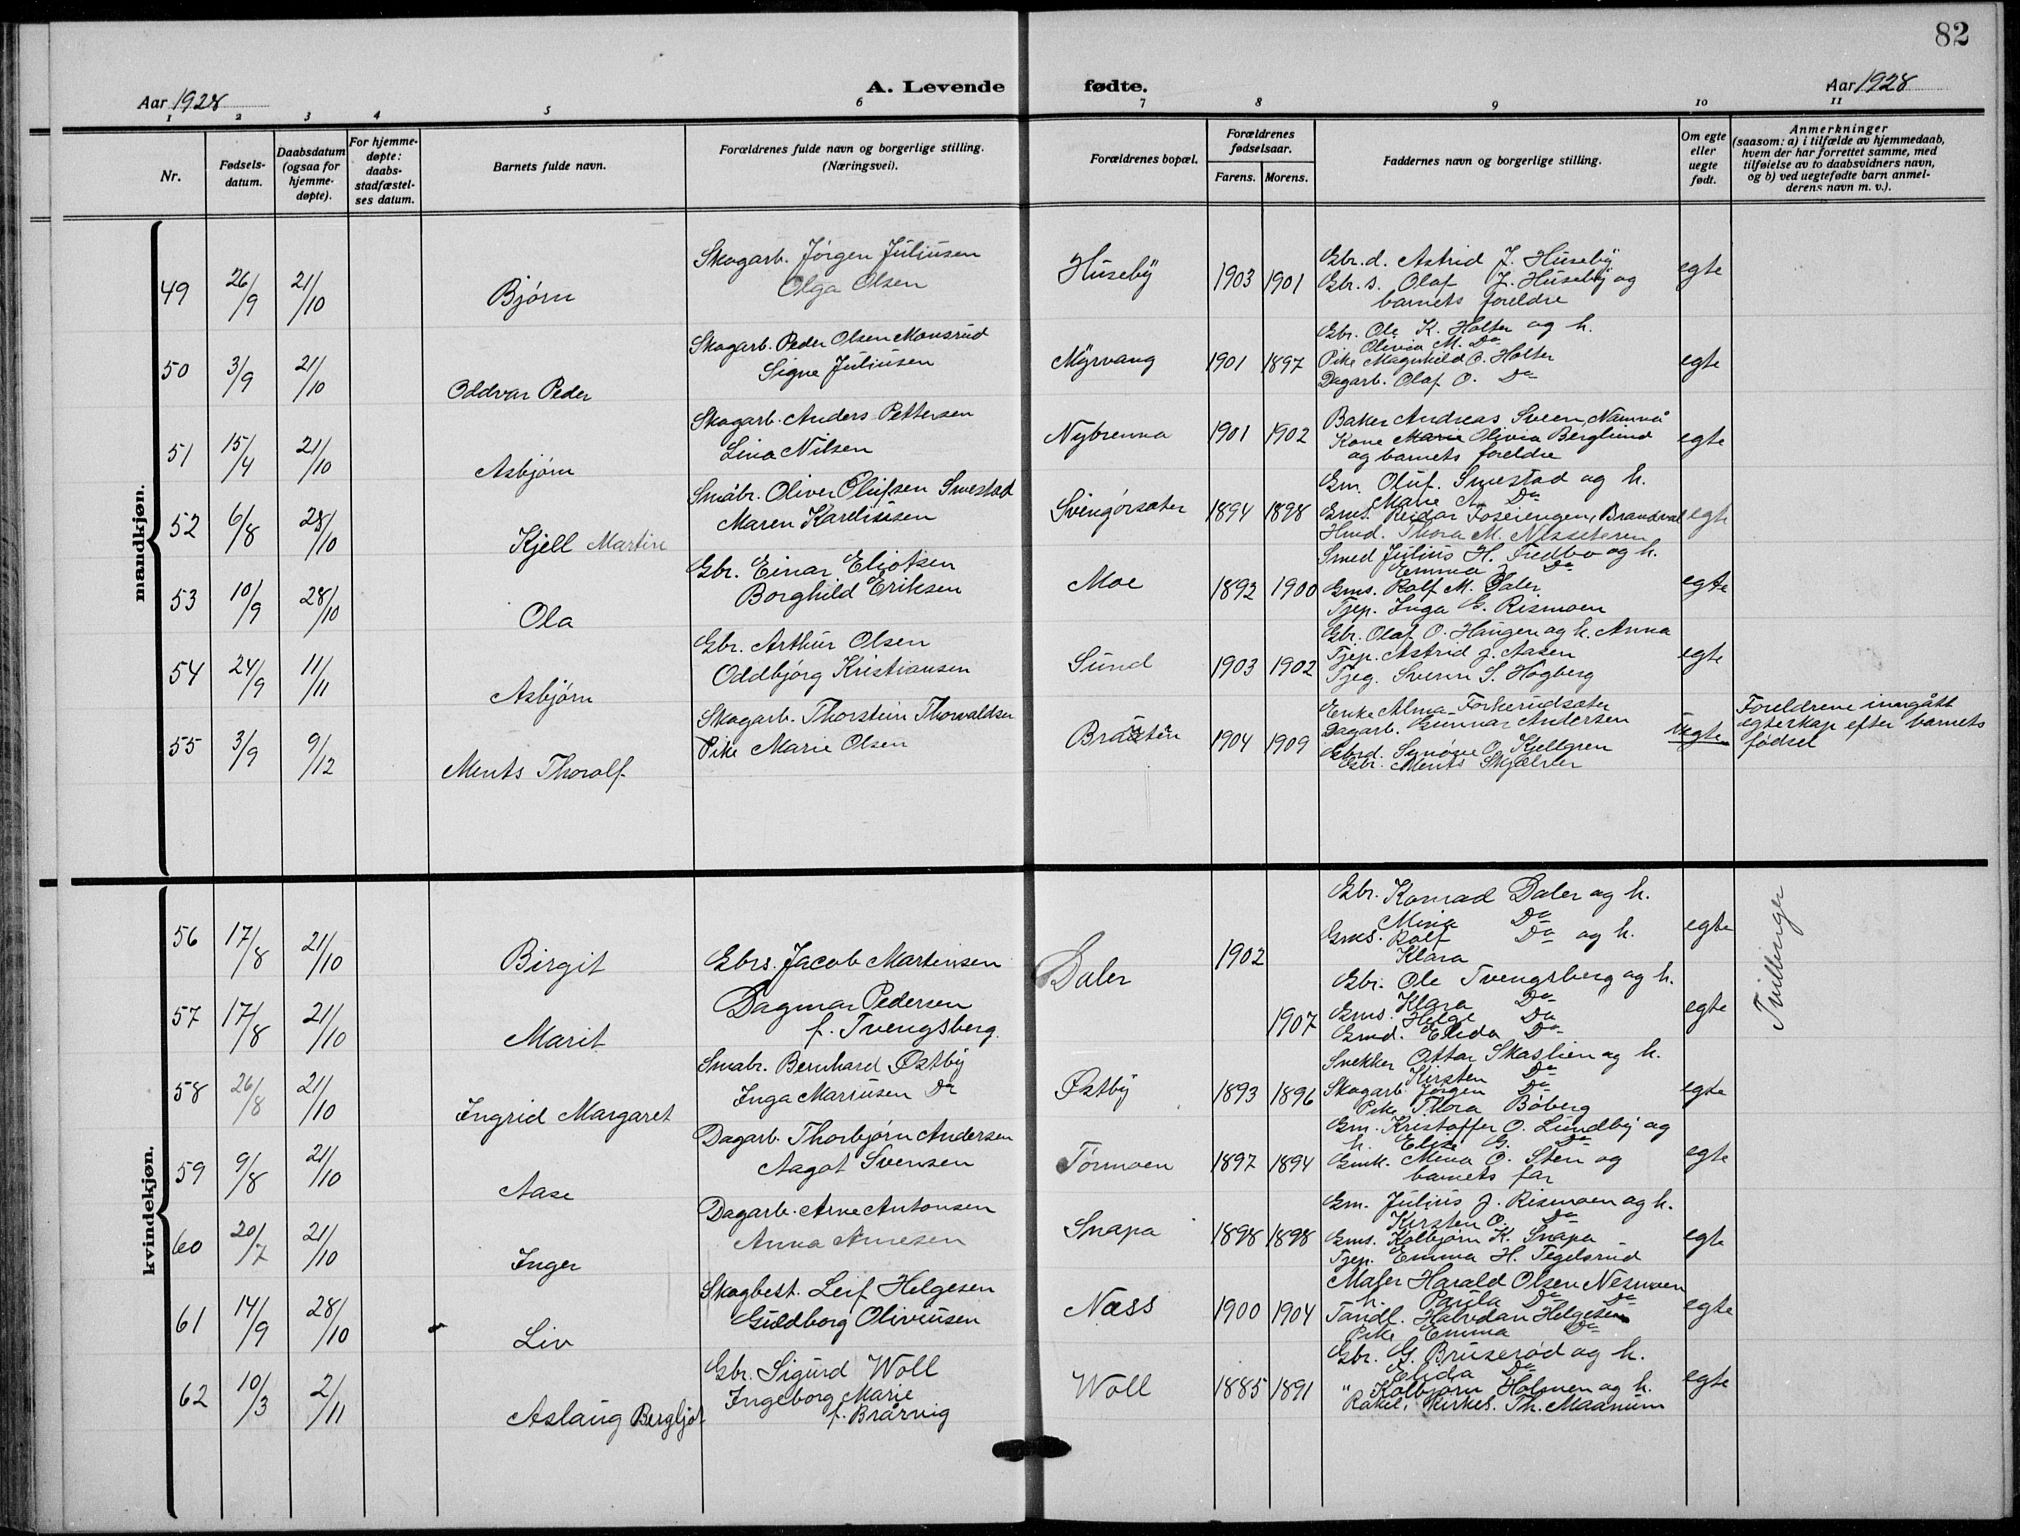 82
Aar 1928
A. Levende fødte.
Aar 1928
1 2 3 4 5 6 7 8 9 10 11
Nr.
Fødsels-
datum.
Daabsdatum
(ogsaa for
hjemme-
døpte).
For hjemme-
døpte:
daabs-
stadfæstel-
ses datum.
Barnets fulde navn.
Forældrenes fulde navn og borgerlige stilling.
(Næringsvei).
Forældrenes bopæl.
Forældrenes
fødselsaar.
Farens. Morens.
Faddernes navn og borgerlige stilling.
Om egte
eller
uegte
født.
Anmerkninger
(saasom: a) i tilfælde av hjemmedaab,
hvem der har forrettet samme, med
tilføielse av to daabsvidners navn,
og b) ved uegtefødte barn anmel-
derens navn m. v.).
mandkjøn.
49 26/9 21/10 Bjørn
Skogarb. Jörgen Juliusen
Olga Olsen
Huseby 1903 1901
Gbr.d. Astrid J. Huseby
Gbr.s. Olaf J. Huseby og
barnets foreldre
egte
50 3/9 21/10 Oddvar Peder
Skogarb. Peder Olsen Monsrud
Signe Juliusen
Myrvang 1901 1897
Gbr. Ole K. Holter og h.
Olivia M. Do
Pike Magnhild O. Holter
Dagarb. Olaf O. Do
egte
51 15/4 21/10 Asbjørn
Skogarb. Anders Pettersen
Lina Nilsen
Nybrenna 1901 1902
Baker Andreas Sveen, Namnå
Kone Marie Olivia Berglund
og barnets foreldre
egte
52 6/8 28/10 Kjell Martin
Småbr. Oliver Olufsen Smestad
Maren Kareliusen
Svingörsæter 1894 1898
Gm. Oluf Smestad og h.
Marie A. Do
Gms. Reidar Foseiengen, Brandval
Hmd. Thora M. Nisseteren
egte
53 10/9 28/10 Ola
Gbr. Einar Eliotsen
Borghild Eriksen
Moe 1892 1900
Smed Julius H. Fredbo og h.
Emma J. Do
Gms. Rolf M. Daler
Tjep. Inga G. Rismoen
egte
54 24/9 11/11 Asbjørn
Gbr. Arthur Olsen
Oddbjörg Kristiansen
Sund 1903 1902
Gbr. Olaf O. Haugen og h. Anna
Tjep. Astrid J. Aasen
Tjeg. Sverre S. Hogberg
egte
55 3/9 9/12 Ments Thorolf
Skogarb. Thorstein Thorvaldsen
Pike Marie Olsen
Bråten 1904 1909
Enke Alma Forkerudsæter
Dagarb. Gunnar Andersen
Gbrd. Synöve O. Kjellgren
Gbr. Ments Skjælver
Uegte
Foreldrene inngått
egterskap efter barnets
födsel
kvindekjøn.
56 17/8 21/10 Birgit
Gbrs. Jacob Martinsen
Daler 1902
Gbr. Konrad Daler og h.
Mina Do
Gms. Rolf Do og h.
Klara
egte
Tvillinger
57 17/8 21/10 Marit
Dagmar Pedersen
f. Tvengsberg
1907
Gbr. Ole Tvengsberg og h.
Klara Do
Gms. Helge Do
Gmd. Elida Do
egte
58 26/8 21/10 Ingrid Margaret
Småbr. Bernhard Østby
Inga Mariusen Do
Østby 1893 1896
Snekker Ottar Skaslien og h.
Kirsten Do
Skogarb. Jörgen Do
Pike Thora Böberg
egte
59 9/8 21/10 Aase
Dagarb. Thorbjørn Andersen
Aagot Svensen
Törmoen 1897 1894
Gm. Kristoffer O. Lundby og
h. Elise G. Do
Gmk. Mina O. Sten og
barnets far
egte
60 20/7 21/10 Inger
Dagarb. Arne Antonsen
Anna Arnesen
Snapa 1898 1898
Gm. Julius J. Rismoen og h.
Kirsten O. Do
Gms. Kolbjörn K. Snapa
Tjep. Emma H. Tegelsrud
egte
61 14/9 28/10 Liv
Skogbest. Leif Helgesen
Guldborg Oliviusen
Næss 1900 1904
Maler Harald Olsen Nesmoen
h. Paula Do Do
Tandl. Halvdan Helgesen
Pike Emma Do
egte
62 10/3 2/11 Aslaug Bergljot
Gbr. Sigurd Woll
Ingeborg Marie
f. Brårvig
Woll 1885 1891
Gbr. G. Bruseröd og h.
Elida Do
" Kolbjørn Holmen og h.
Rakel, Kirkes. Th. Maanum
egte